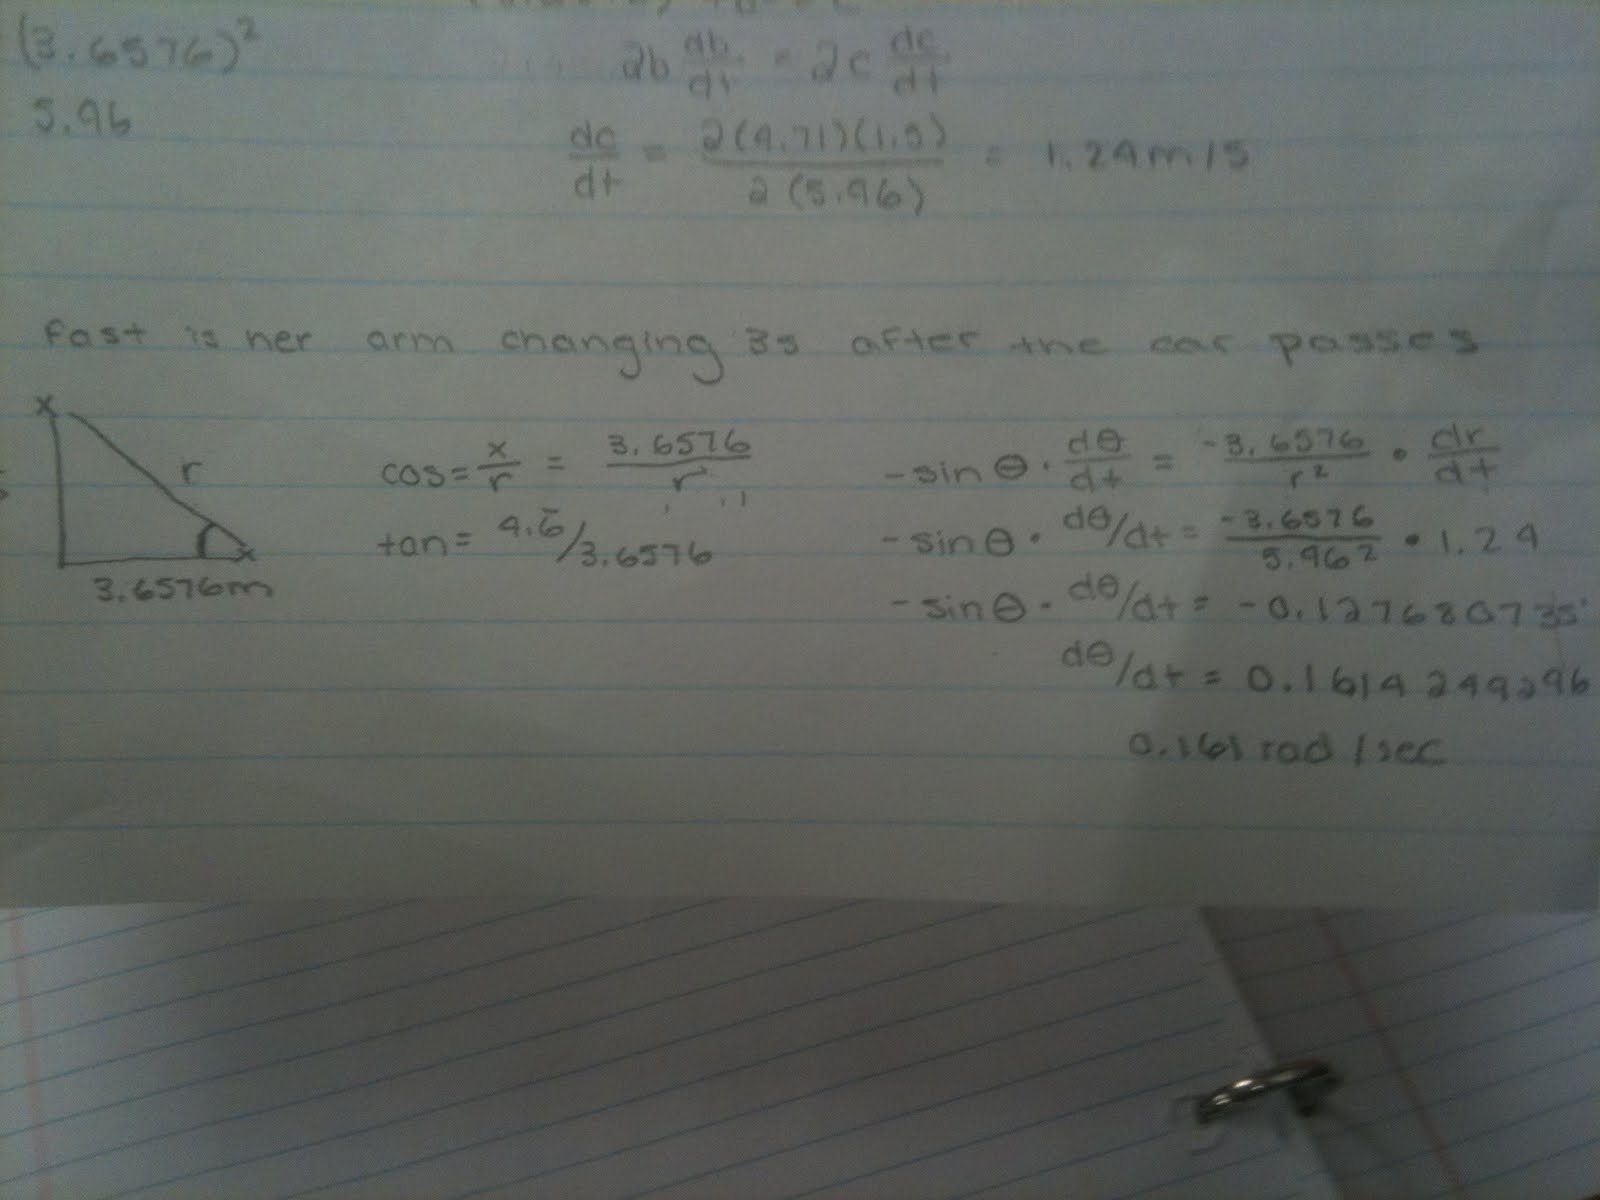 (3.6576)²
2b db/dt = 2c dc/dt
5.96
dc/dt = 2(4.71)(1.5) / 2(5.96) = 1.24m/s
fast is her arm changing 3s after the car passes
x
r
x
3.6576m
cos = x/r = 3.6576/r
tan = 4.6/3.6576
-sinθ · dθ/dt = -3.6576/r² · dr/dt
-sinθ · dθ/dt = -3.6576/5.96² · 1.24
-sinθ · dθ/dt = -0.127680735
dθ/dt = 0.1614249296
0.161 rad/sec